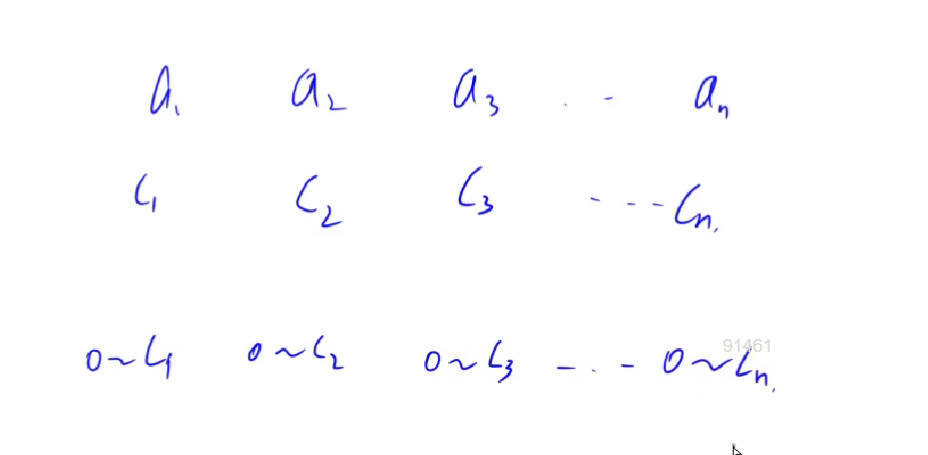 a₁ a₂ a₃ . - aₙ
C₁ C₂ C₃ - - - Cₙ.
0~C₁ 0~C₂ 0~C₃ - . - 0~Cₙ.
91461